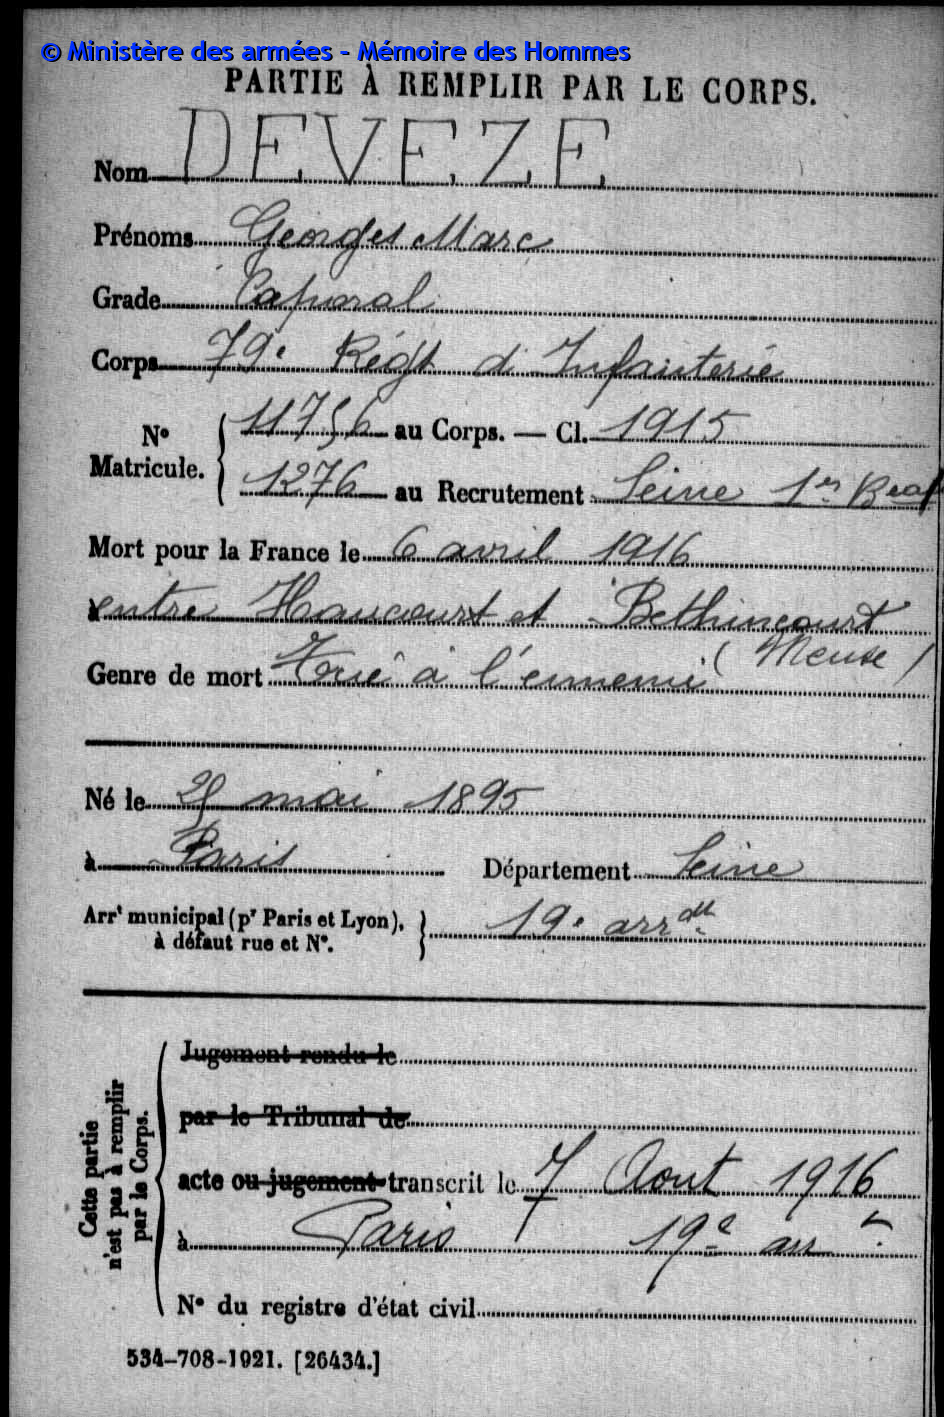 © Ministère des armées - Mémoire des Hommes
PARTIE À REMPLIR PAR LE CORPS.
Nom DEVEZE
Prénoms Georges Marc
Grade Caporal
Corps 79e Régt d'Infanterie
N° Matricule. { 11756 au Corps. — Cl. 1915
1276 au Recrutement Seine 1er
Mort pour la France le 6 avril 1916
à entre Haucourt et Bethincourt
(Meuse)
Genre de mort Tué à l'ennemi
Né le mai 1895
à Paris Département Seine
Arrt municipal (pr Paris et Lyon), à défaut rue et N°. } 19e arrdt
Cette partie n'est pas à remplir par le Corps.
Jugement rendu le
par le Tribunal de
acte ou jugement transcrit le 7 Aout 1916
à Paris 19e arrt
N° du registre d'état civil
534-708-1921. [26434.]